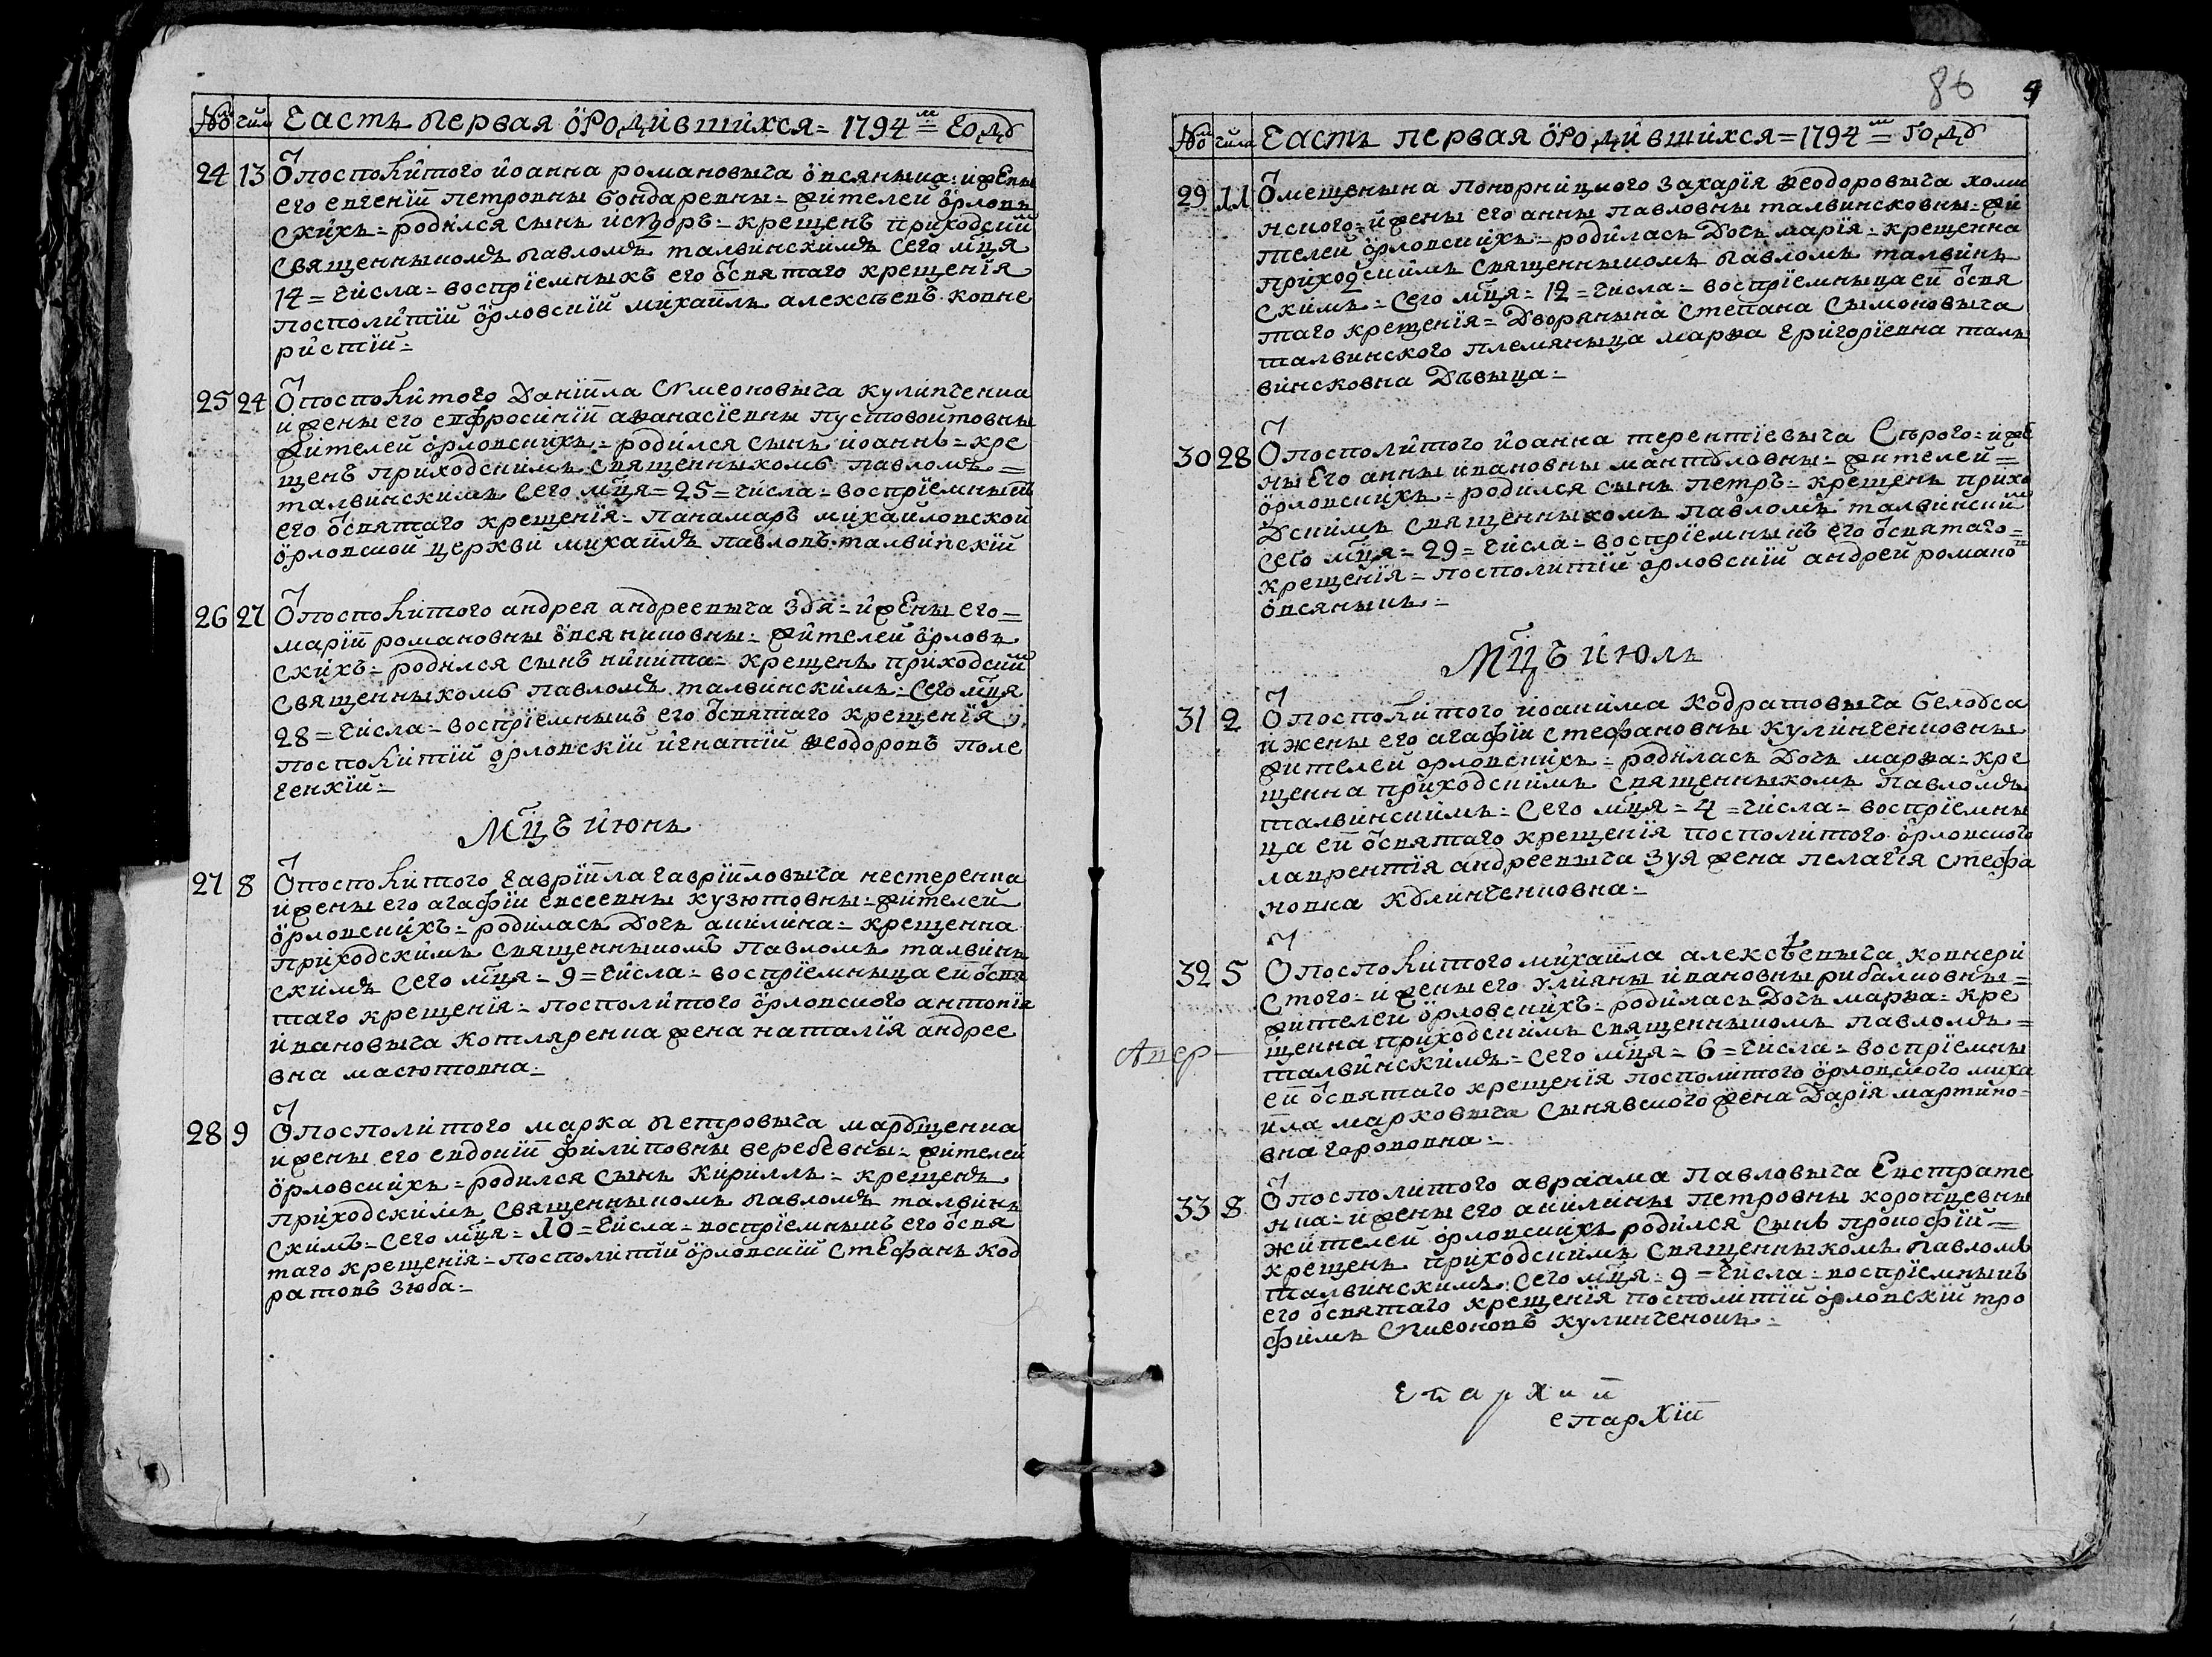 № числ Часть первая о Родившихся = 1794 м = Годѣ
24 13 Ѿ посполитого иоанна романовыча овсяныка: и жены
его евгении петровны бондаревны = жителей орловъ
скихъ = родился сынъ исидоръ = крещенъ приходским
священныкомъ павломъ талвинскимъ сего мця
14 = числа = восприемныкъ его ѿ святаго крещения
посполитий орловский михаилъ алексѣевъ копне
ристий =
25 24 Ѿ посполитого даниила симеоновыча кулинченка
и жены его евфросинии аѳанасиевны пустовойтовны
жителей орловскихъ = родился сынъ иоаннъ = кре
щенъ приходскимъ священныкомъ павломъ =
талвинскимъ сего мця = 25 = числа = восприемныкъ
его ѿ святаго крещения = панамаръ михайловской
орловской церкви михаилъ павловъ талвинский
26 27 Ѿ посполитого андрея андреевыча зуя = и жены его =
марии романовны овсяниковны = жителей орловъ
скихъ = родился сынъ никита = крещенъ приходским
священныкомъ павломъ талвинскимъ = сего мця
28 = числа = восприемныкъ его ѿ святаго крещения
посполитий орловский игнатий ѳеодоровъ поле
ченкий =
Мцъ июнь
27 8 Ѿ посполитого гавриила гаврииловыча нестеренка
и жены его агафии евсеевны кузютовны = жителей
орловскихъ = родилась дочь акилина = крещенна
приходскимъ священныкомъ павломъ талвинь
скимъ сего мця = 9 = числа = восприемныца ей ѿ свя
таго крещения = посполитого орловского антония
ивановыча котляренка жена наталия андрее
вна масютовна =
28 9 Ѿ посполитого марка петровыча марущенка
и жены его евдокии филиповны веребевны = жителей
орловскихъ = родился сынъ кириллъ = крещенъ
приходскимъ священныкомъ павломъ талвинь
скимъ = сего мця = 10 = числа = восприемныкъ его ѿ свя
таго крещения = посполитий орловский стефанъ код
ратовъ зюба =
86
№ числа Часть первая о Родившихся = 1794 м = Годѣ
29 11 Ѿ мещенына понорницкого захария ѳеодоровыча холш
нского = и жены его анны павловны талвинсковны = жи
телей орловскихъ = родилась дочь мария = крещенна
приходскимъ священныкомъ павломъ талвинь
скимъ = сего мця = 12 = числа = восприемныца ей ѿ свя
таго крещения = дворянына степана сымоновыча
талвинского племяныца марѳа григориевна таль
винсковна дѣвыца =
30 28 Ѿ посполитого иоанна терентиевыча сѣрого = и же
ны его анны ивановны мантуловны = жителей =
орловскихъ = родился сынъ петръ = крещенъ прихо
дскимъ священныкомъ павломъ талвинским
сего мця = 29 = числа = восприемныкъ его ѿ святаго =
крещения = посполитий орловский андрей романов
овсяныкъ =
Мцъ июль
31 2 Ѿ посполитого иоакима кодратовыча белоуса
и жены его агафии стефановны кулинченковны
жителей орловскихъ = родилась дочь марѳа = кре
щенна приходскимъ священныкомъ павломъ
талвинскимъ = сего мця = 4 = числа = восприемны
ца ей ѿ святаго крещения посполитого орловского
лаврентия андреевыча зуя жена пелагия стефа
новна кулинченковна =
32 5 Ѿ посполитого михаила алексѣевыча копнери
стого = и жены его улияны ивановны рибалковны =
жителей орловскихъ = родилась дочь марѳа = кре
щенна приходскимъ священныкомъ павломъ =
талвинскимъ = сего мця = 6 = числа = восприемны
ей ѿ святаго крещения посполитого орловского миха
ила марковыча сынявского жена дария мартино
вна гороповна =
33 8 Ѿ посполитого авраама павловыча евстрате
нка = и жены его акилины петровны коропцевны
жителей орловскихъ родился сынъ прокофий =
крещенъ приходскимъ священныкомъ павломъ
талвинскимъ: сего мця = 9 = числа = восприемныкъ
его ѿ святаго крещения посполитий орловский тро
фимъ симеоновъ кулинченокъ =
Епархии
епархии